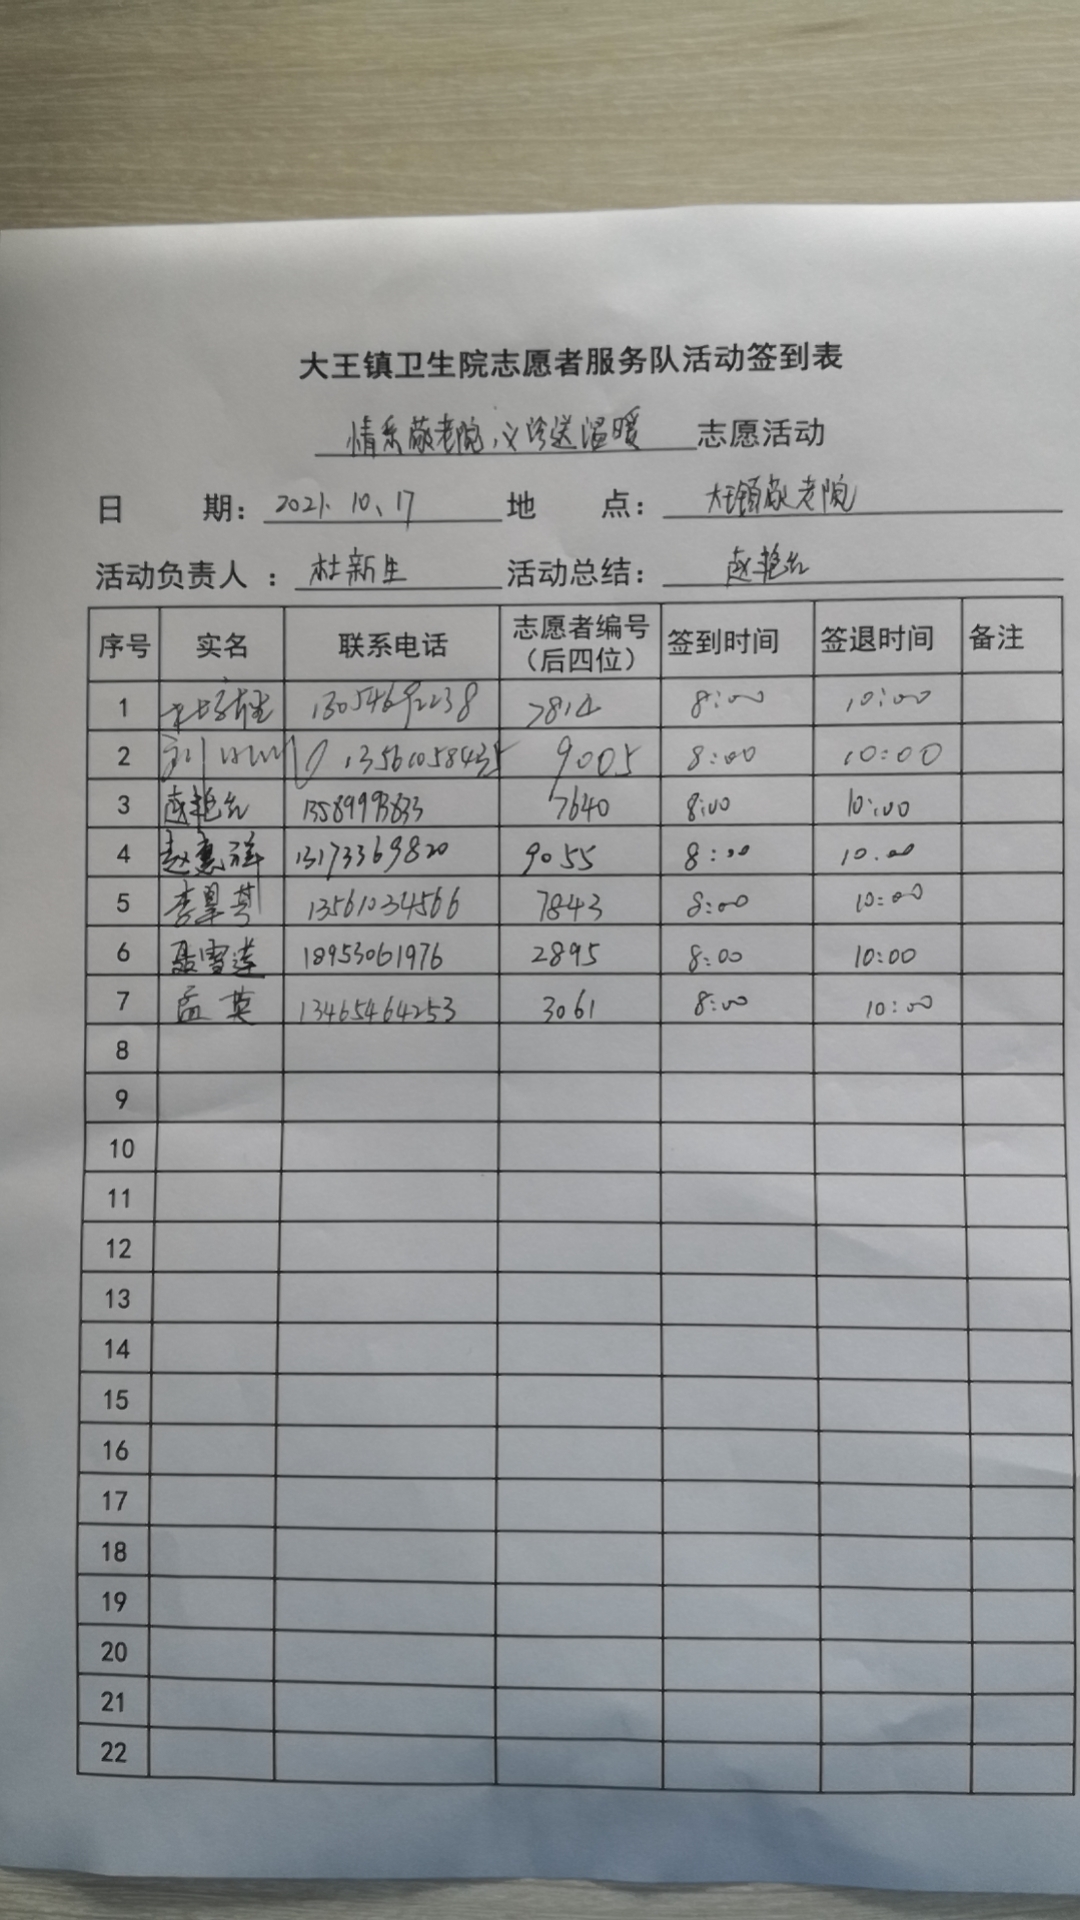 大王镇卫生院志愿者服务队活动签到表
情系敬老院,义诊送温暖 志愿活动
日 期: 2021.10、17 地 点: 大王镇敬老院
活动负责人 : 杜新生 活动总结: 赵艳
序号 实名 联系电话 志愿者编号(后四位) 签到时间 签退时间 备注
1 杜新生 13054692238 7814 8:00 10:00
2 刘 13561058435 9005 8:00 10:00
3 赵艳 7640 8:00 10:00
4 赵惠祥 13173369820 9055 8:00 10.00
5 李 13561034566 7843 8:00 10:00
6 聂雪莲 18953061976 2895 8:00 10:00
7 孟英 13465464253 3061 8:00 10:00
8
9
10
11
12
13
14
15
16
17
18
19
20
21
22